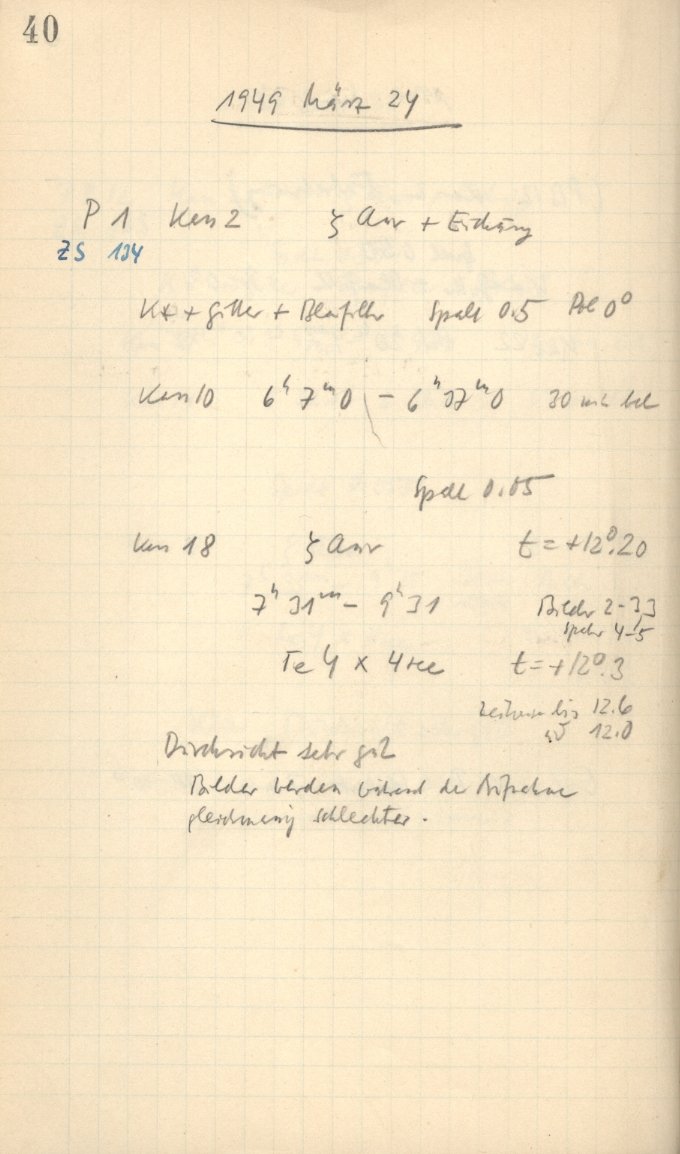 40
1949 März 24
P 1 Kass 2 ζ Aur + Eichung
ZS 134
+ Gitter + Blaufilter Spalt 0.5 Pol 0°
Kass 10 6ʰ 7ᵐ0 – 6ʰ 37ᵐ0 30 min bel
Spalt 0.05
Kass 18 ζ Aur t = +12°.20
7ʰ 31ᵐ – 9ʰ 31 Bilder 2-3
4-5
Te 4 × 4 sec t = +12°.3
zeitweise bis 12.6
12.0
Durchsicht sehr gut
Bilder werden während der Aufnahme
gleichmässig schlechter.